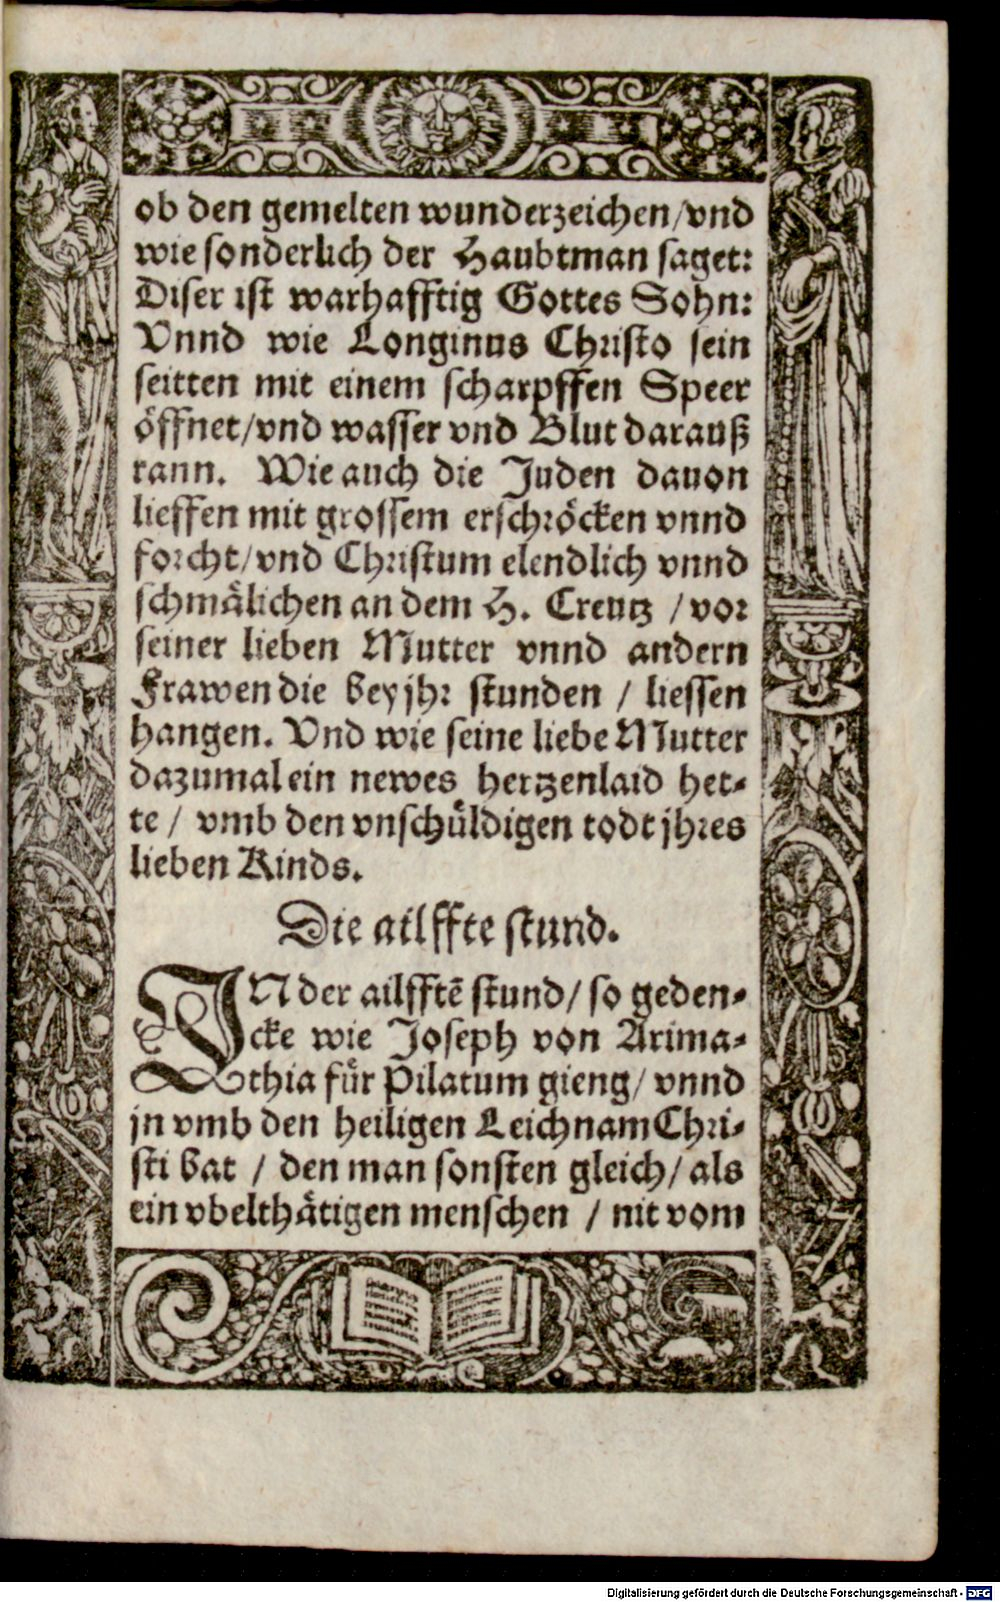 ob den gemelten wunderzeichen/vnd
wie sonderlich der Haubtman saget:
Diser ist warhafftig Gottes Sohn:
Vnnd wie Longinus Christo sein
seitten mit einem scharpffen Speer
öffnet/vnd wasser vnd Blut darauß
rann. Wie auch die Juden dauon
lieffen mit grossem erschröcken vnnd
forcht/vnd Christum elendlich vnnd
schmälichen an dem H. Creutz /vor
seiner lieben Mutter vnnd andern
Frawen die bey jhr stunden / liessen
hangen. Vnd wie seine liebe Mutter
dazumal ein newes hertzenlaid het-
te / vmb den vnschüldigen todt jhres
lieben Kinds.
Die ailffte stund.
IN der ailfftē stund/ so geden-
cke wie Joseph von Arima-
thia für Pilatum gieng/ vnnd
jn vmb den heiligen Leichnam Chri-
sti bat / den man sonsten gleich/ als
ein vbelthätigen menschen / nit vom
Digitalisierung gefördert durch die Deutsche Forschungsgemeinschaft - DFG